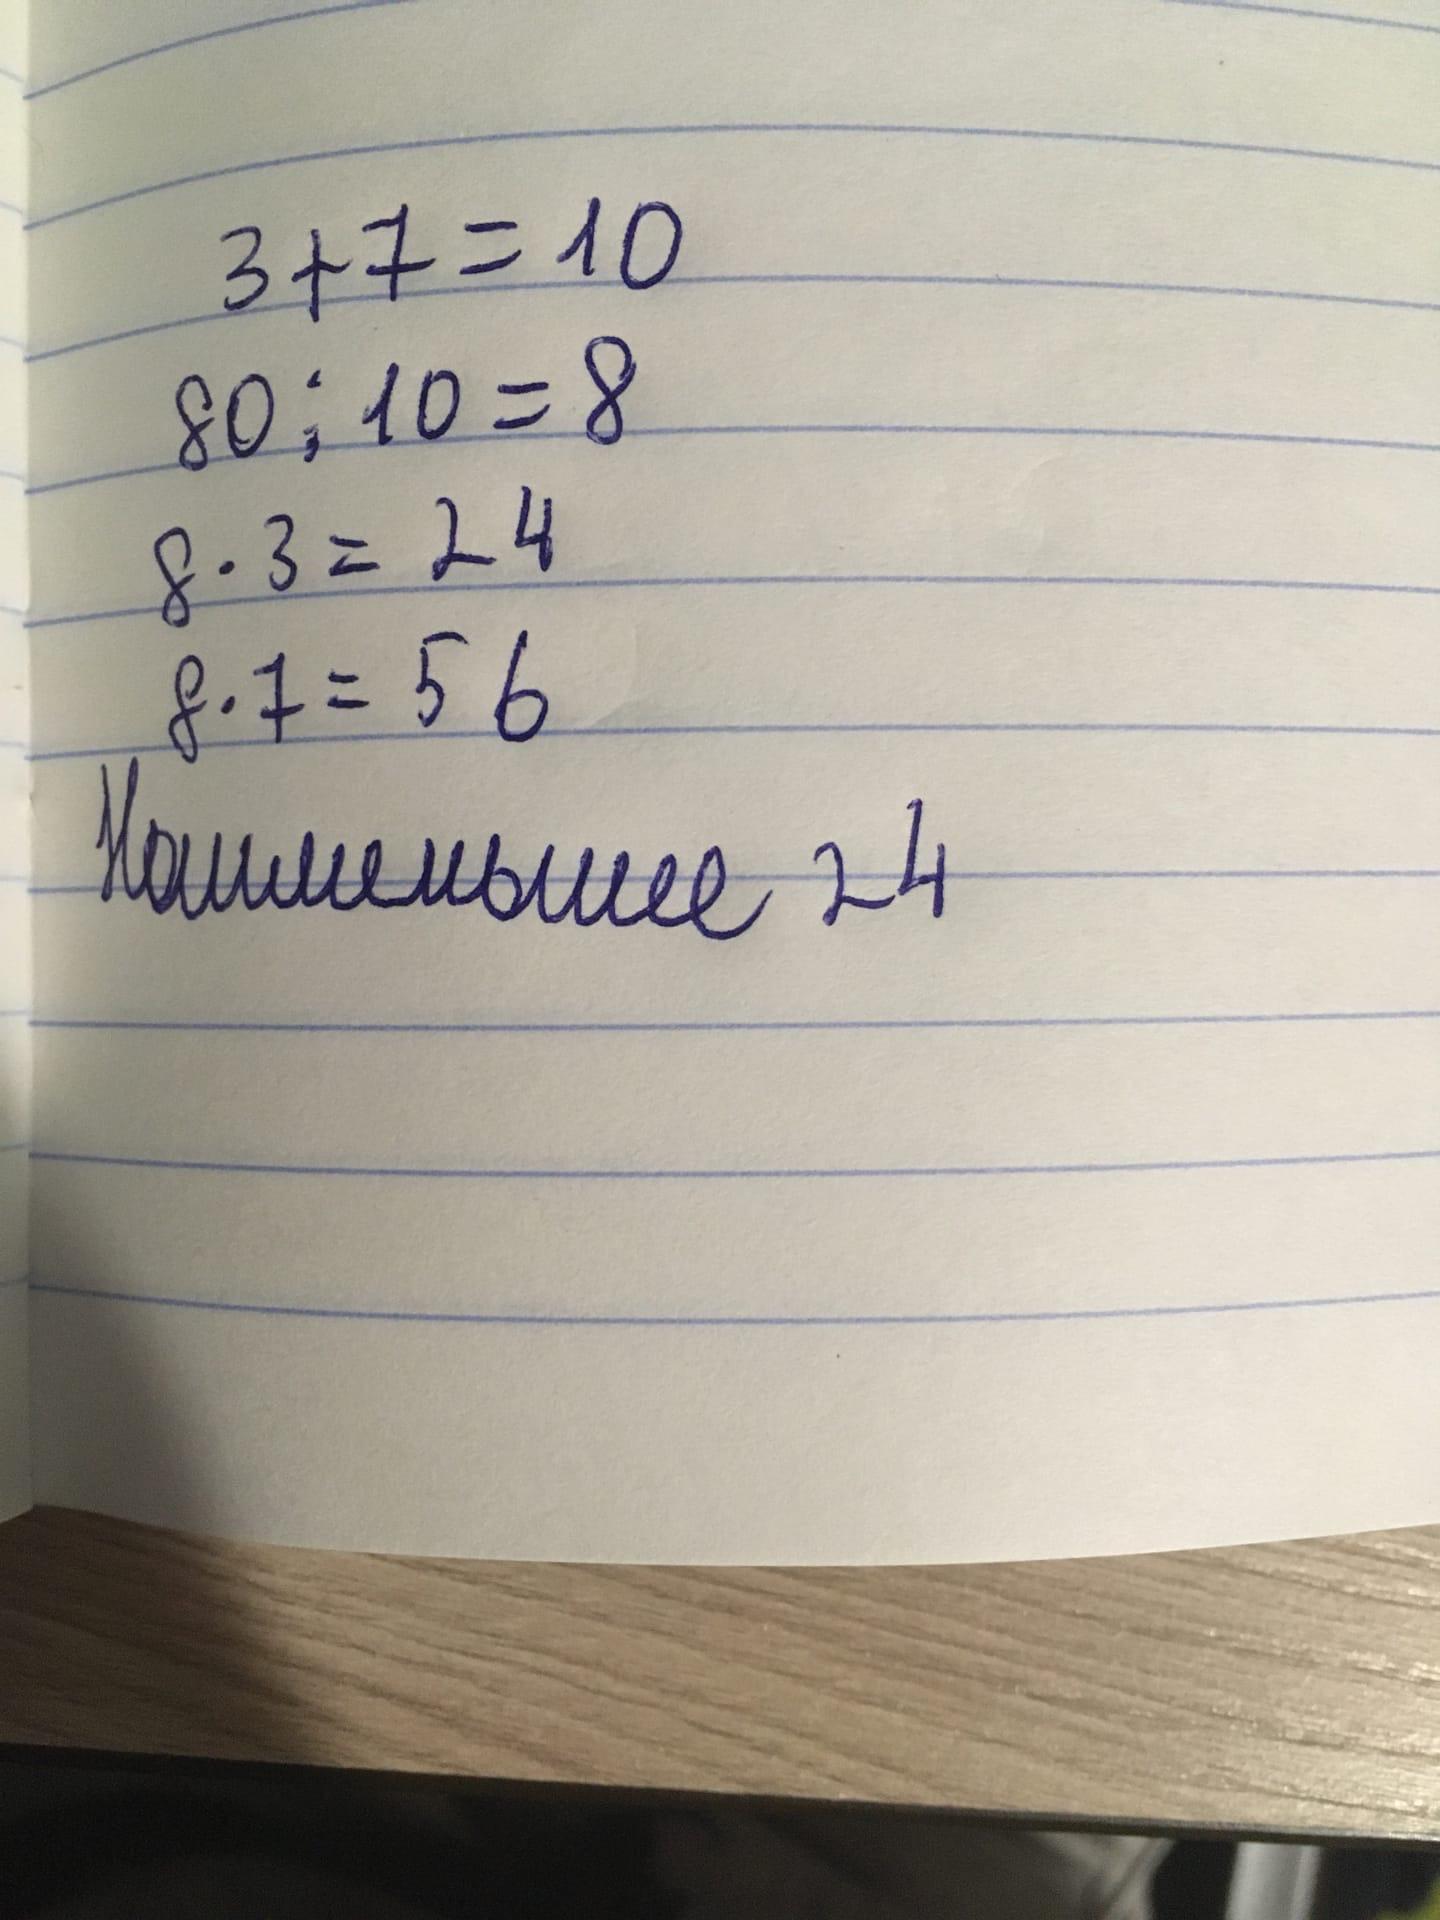 3+7=10
80:10=8
8·3=24
8·7=56
Наименьшее 24